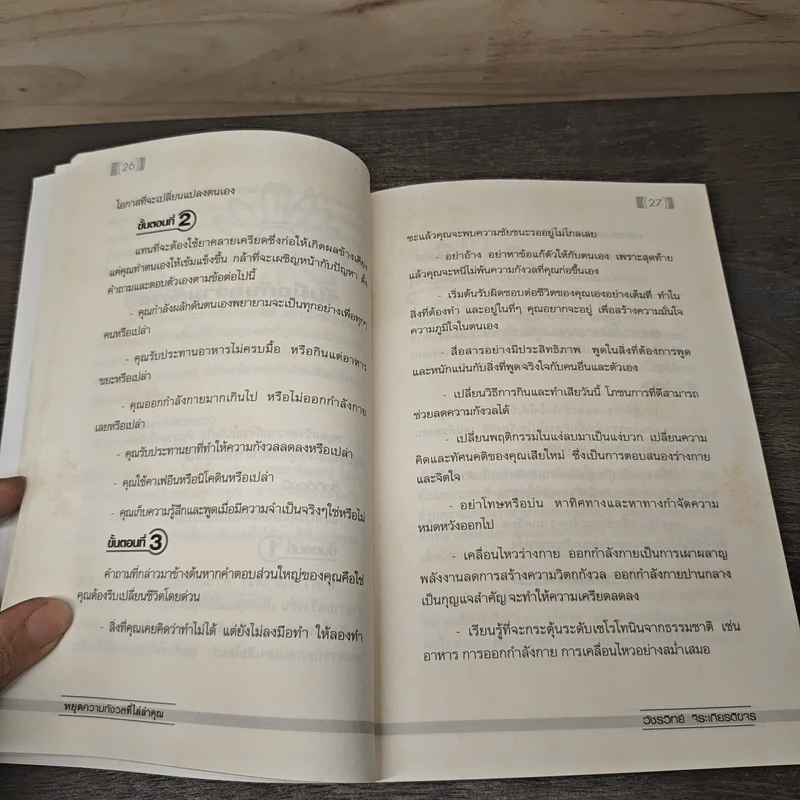 26
โอกาสที่จะเปลี่ยนแปลงตนเอง
ขั้นตอนที่ 2
แทนที่จะต้องใช้ยาคลายเครียดซึ่งก่อให้เกิดผลข้างเคียง
แค่คุณทำตนเองให้เข้มแข็งขึ้น กล้าที่จะเผชิญหน้ากับปัญหา ตั้ง
คำถามและตอบตัวเองตามข้อต่อไปนี้
- คุณกำลังผลักดันตนเองพยายามจะเป็นทุกอย่างเพื่อทุกๆ
คนหรือเปล่า
- คุณรับประทานอาหารไม่ครบมื้อ หรือกินแต่อาหาร
ขยะหรือเปล่า
- คุณออกกำลังกายมากเกินไป หรือไม่ออกกำลังกาย
เลยหรือเปล่า
- คุณรับประทานยาที่ทำให้ความกังวลลดลงหรือเปล่า
- คุณใช้คาเฟอีนหรือนิโคตินหรือเปล่า
- คุณเก็บความรู้สึกและพูดเมื่อมีความจำเป็นจริงๆใช่หรือไม่
ขั้นตอนที่ 3
คำถามที่กล่าวมาข้างต้นหากคำตอบส่วนใหญ่ของคุณคือใช่
คุณต้องรีบเปลี่ยนชีวิตโดยด่วน
- สิ่งที่คุณเคยคิดว่าทำไม่ได้ แต่ยังไม่ลงมือทำ ให้ลองทำ
หยุดความกังวลที่ไล่ล่าคุณ
27
ซะแล้วคุณจะพบความชัยชนะรออยู่ไม่ไกลเลย
- อย่าอ้าง อย่าหาข้อแก้ตัวให้กับตนเอง เพราะสุดท้าย
แล้วคุณจะหนีไม่พ้นความกังวลที่คุณก่อขึ้นเอง
- เริ่มต้นรับผิดชอบต่อชีวิตของคุณเองอย่างเต็มที่ ทำใน
สิ่งที่ต้องทำ และอยู่ในที่ๆ คุณอยากจะอยู่ เพื่อสร้างความมั่นใจ
ความภูมิใจในตนเอง
- สื่อสารอย่างมีประสิทธิภาพ พูดในสิ่งที่ต้องการพูด
และหนักแน่นกับสิ่งที่พูดจริงใจกับคนอื่นและตัวเอง
- เปลี่ยนวิธีการกินและทำเสียวันนี้ โภชนการที่ดีสามารถ
ช่วยลดความกังวลได้
- เปลี่ยนพฤติกรรมในแง่ลบมาเป็นแง่บวก เปลี่ยนความ
คิดและทัศนคติของคุณเสียใหม่ ซึ่งเป็นการตอบสนองร่างกาย
และจิตใจ
- อย่าโทษหรือบ่น หาทิศทางและหาทางกำจัดความ
หมดหวังออกไป
- เคลื่อนไหวร่างกาย ออกกำลังกายเป็นการเผาผลาญ
พลังงานลดการสร้างความวิตกกังวล ออกกำลังกายปานกลาง
เป็นกุญแจสำคัญ จะทำให้ความเครียดลดลง
- เรียนรู้ที่จะกระตุ้นระดับเซโรโทนินจากธรรมชาติ เช่น
อาหาร การออกกำลังกาย การเคลื่อนไหวอย่างสม่ำเสมอ
วัชรวิทย์ จิระเกียรติขจร